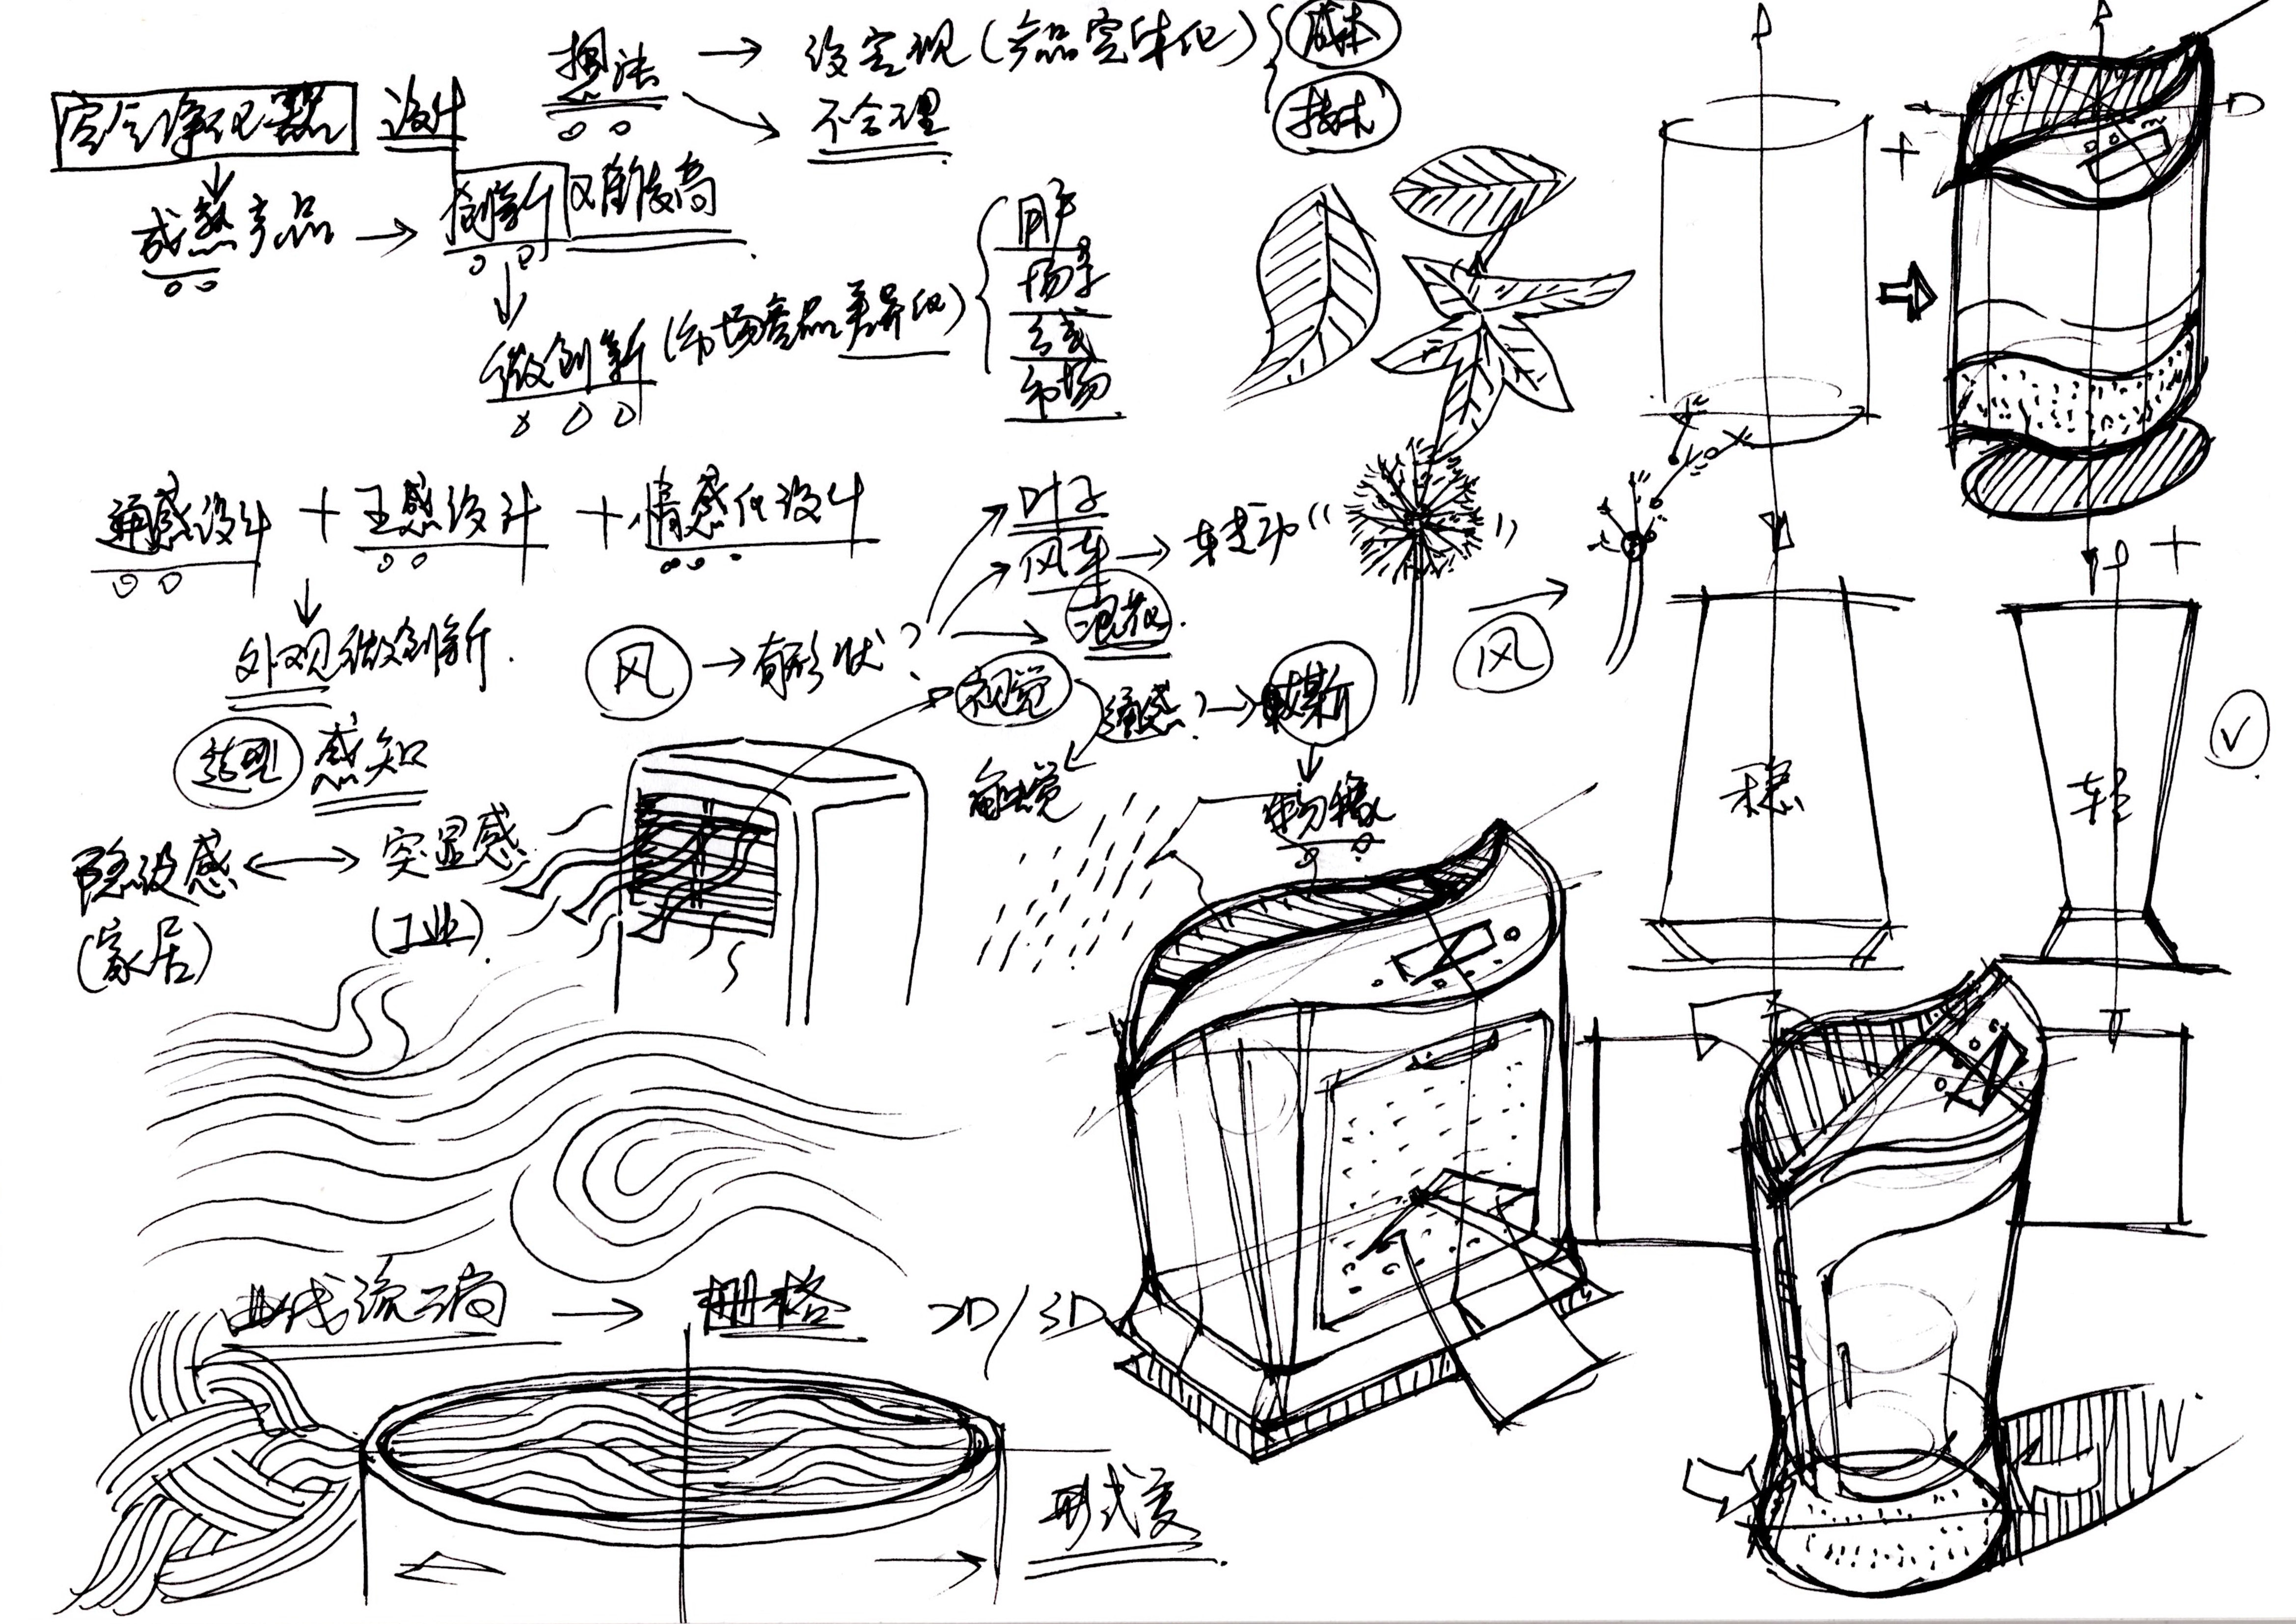 想法 → 没实现(产品实体化) 成本
技术
不合理
空气净化器 设计
成熟产品 → 创新 难度高
微创新(市场产品差异化)
用户
场景
公式
市场
通感设计 + 五感设计 + 情感化设计
外观微创新.
风 → 有形状?
叶子
风车 → 转动
视觉
通感? →
触觉
风
造型 感知
隐没感 ↔ 突显感
(家居) (工业)
稳 轻
曲线流淌 → 栅格 2D/3D
形式变